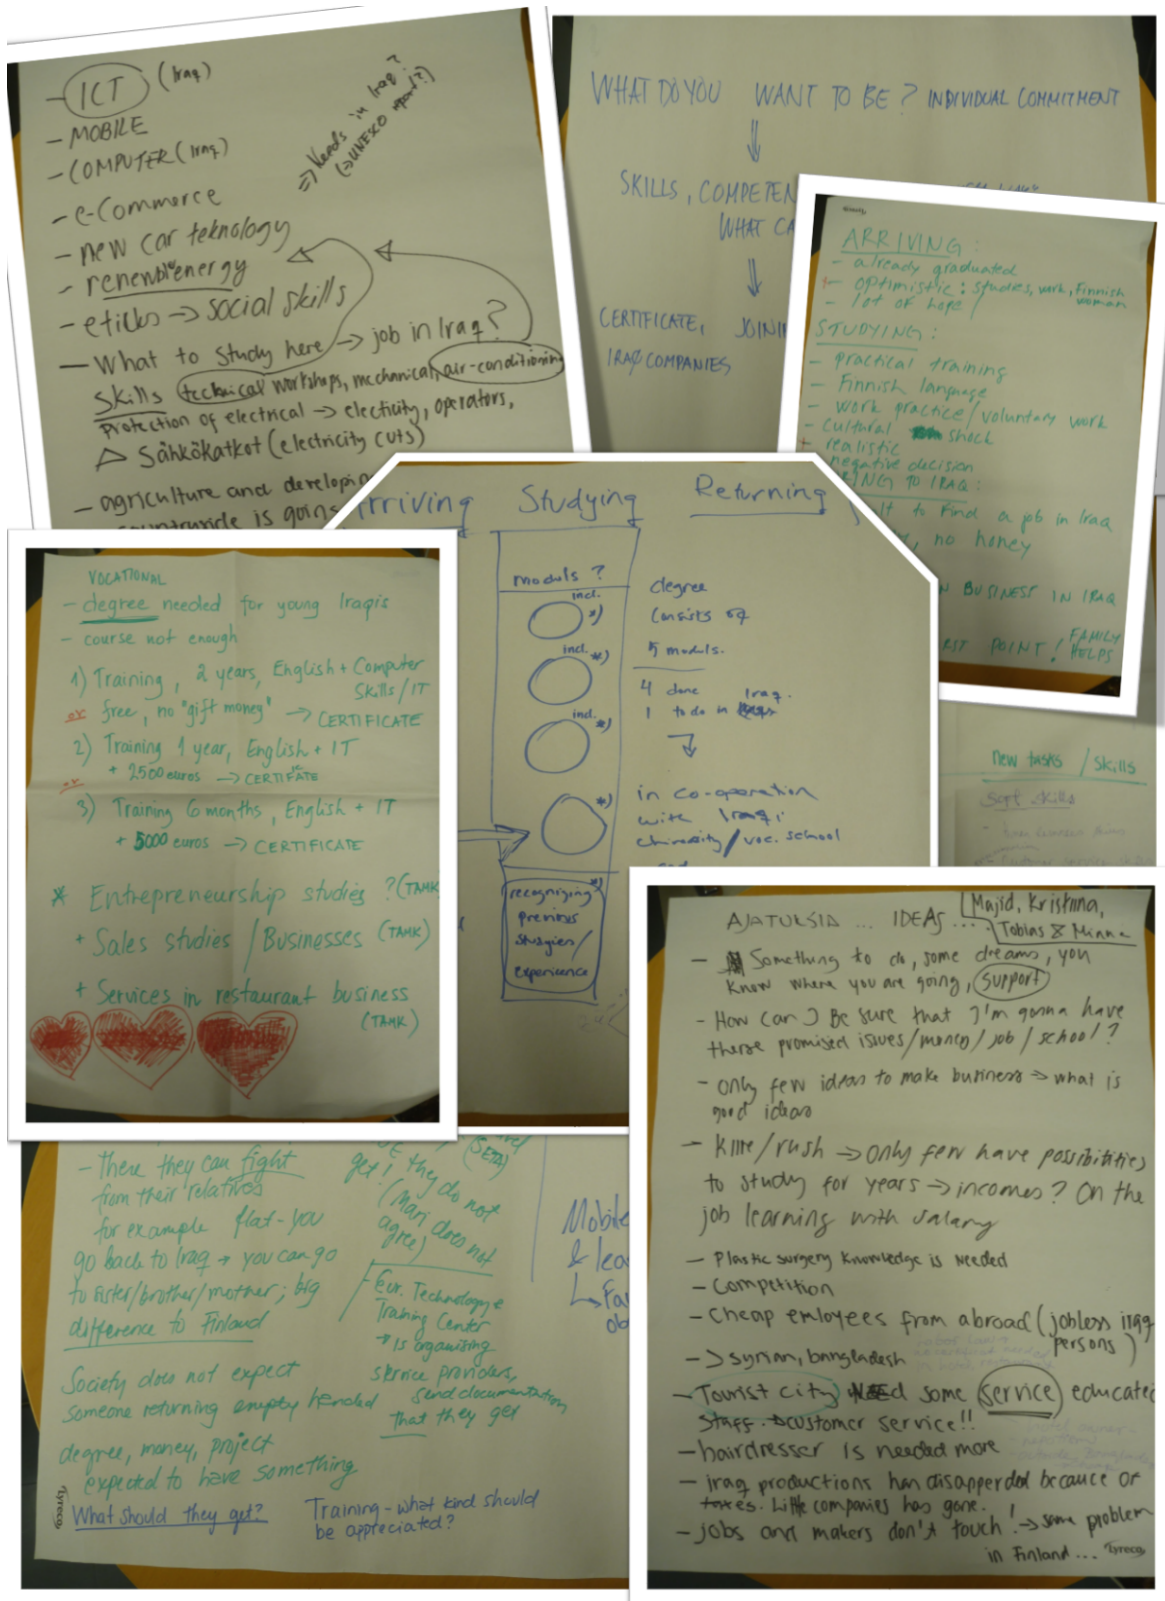 - ICT (Iraq)
- MOBILE
- COMPUTER (Iraq)
- e-Commerce
- new car teknology
- renewbl energy
- eticks → social skills
- What to study here → job in Iraq?
Skills technical workshops, mechanical, air-conditioning
protection of electrical → electicity, operators,
Sähkökatkot (electricity cuts)
- agriculture and developin
countryside is going
⇒ Needs in Iraq?
(→ UNESCO report?)
WHAT DO YOU WANT TO BE? INDIVIDUAL COMMITMENT
SKILLS, COMPETEN
WHAT CA
CERTIFICATE, JOINI
IRAQ COMPANIES
ARRIVING:
- already graduated
+ optimistic: studies, work, Finnish woman
- lot of hope!
STUDYING:
- practical training
- Finnish language
- work practice/voluntary work
- cultural shock
+ realistic
negative decision
RING TO IRAQ:
lt to find a job in Iraq
, no honey
N BUSINESS IN IRAQ
RST POINT! FAMILY HELPS
rriving Studying Returning
moduls?
incl. *)
incl. *)
incl. *)
*)
*)
recognizing
previous
studies/
experience
degree
consists of
5 moduls.
4 done
1 to do in Iraq.
in co-operation
with Iraqi
university/voc. school
VOCATIONAL
- degree needed for young Iraqis
- course not enough
1) Training, 2 years, English + Computer Skills/IT
or free, no "gift money" → CERTIFICATE
2) Training 1 year, English + IT
+ 2500 euros → CERTIFICATE
or
3) Training 6 months, English + IT
+ 5000 euros → CERTIFICATE
* Entrepreneurship studies? (TAMK
+ Sales studies / Businesses (TAMK)
+ Services in restaurant business
(TAMK)
new tasks / skills
Soft skills
AJATUKSIA ... IDEAS .... Majid, Kristiina,
Tobias & Minna
- Something to do, some dreams, you
know where you are going, support
- How can I be sure that I'm gonna have
these promised issues/money/job/school?
- only few ideas to make business → what is
good ideas
- Kiire/rush → only few have possibitities
to study for years → incomes? On the
job learning with salary
- Plastic surgery knowledge is needed
- Competition
- Cheap emloyees from abroad (jobless iraq
persons)
→ syrian, bangladesh
- Tourist city need some service educate
staff. customer service!!
- hairdresser is needed more
- iraq productions has disapperded becauce of
taxes. Little companies has gone.
- jobs and makers don't touch! → same problem
in Finland...
Tyreco
- There they can fight
from their relatives
for example flat - you
go back to Iraq → you can go
to sister/brother/mother; big
difference to Finland
Society does not expect
someone returning empty handed
degree, money, project
expected to have something
What should they get?
get! they do not
(Mari does not
agree)
Eur. Technology
Training Center
→ is organising
service providers,
send documentation
that they get
Training - what kind should
be appreciated?
Tyreco
Mobile
& lea